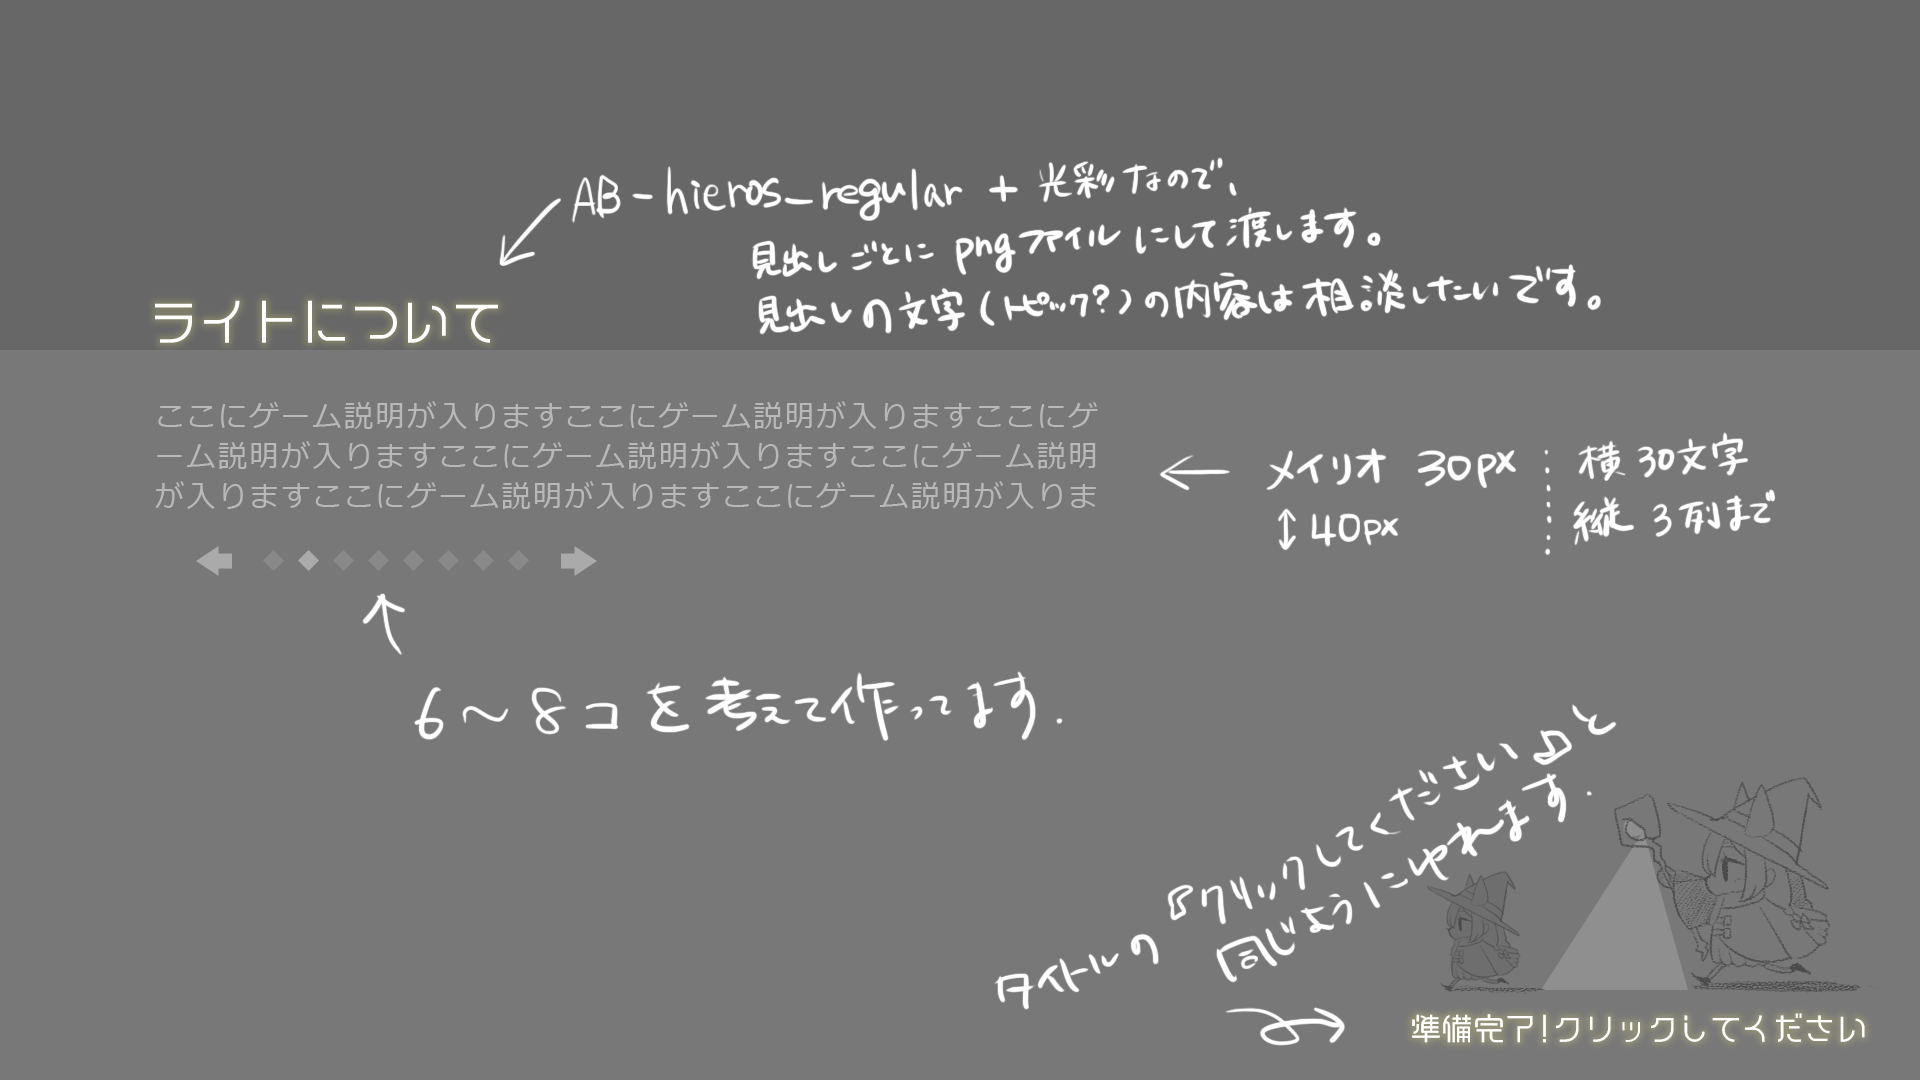 AB-hieros_regular + 光彩なので、
見出しごとにpngファイルにして渡します。
見出しの文字(トピック?)の内容は相談したいです。
ライトについて
ここにゲーム説明が入りますここにゲーム説明が入りますここにゲ
ーム説明が入りますここにゲーム説明が入りますここにゲーム説明
が入りますここにゲーム説明が入りますここにゲーム説明が入りま
← メイリオ 30px
↕40px
横30文字
縦3列まで
6〜8コを考えて作ってます.
タイトルの『クリックしてください』と
同じようにゆれます.
準備完了!クリックしてください